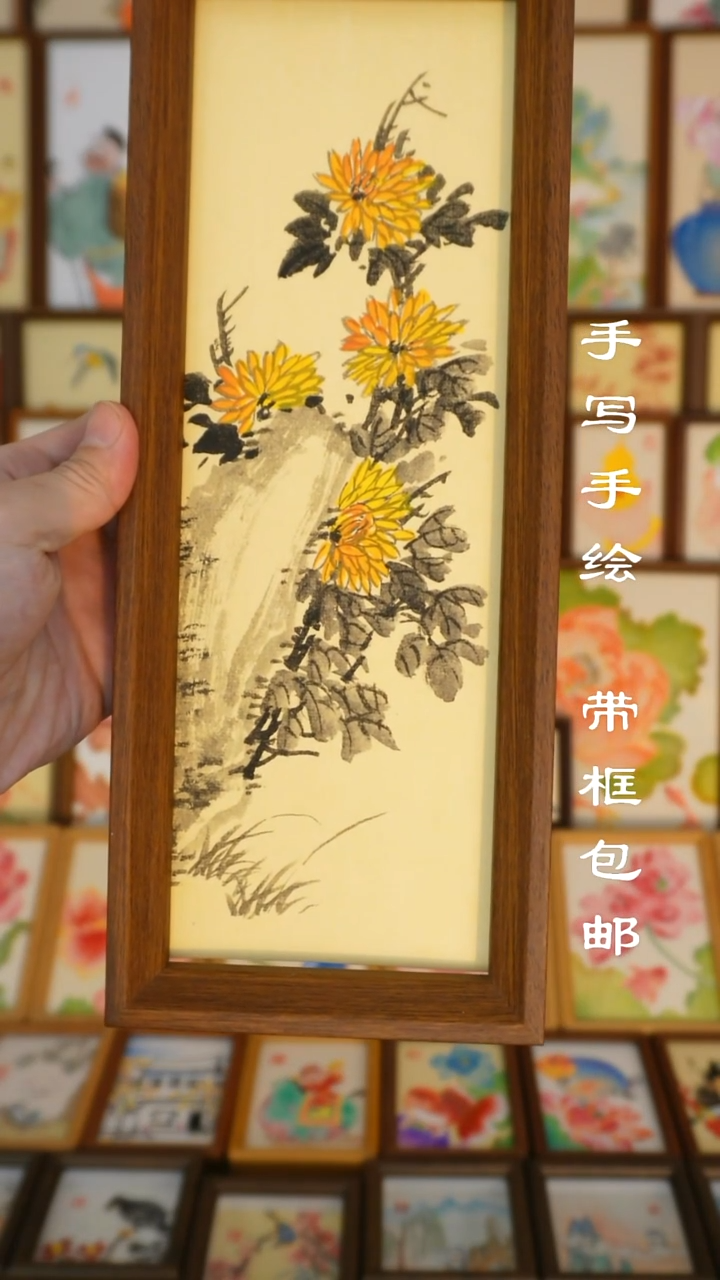 手写手绘
带框包邮